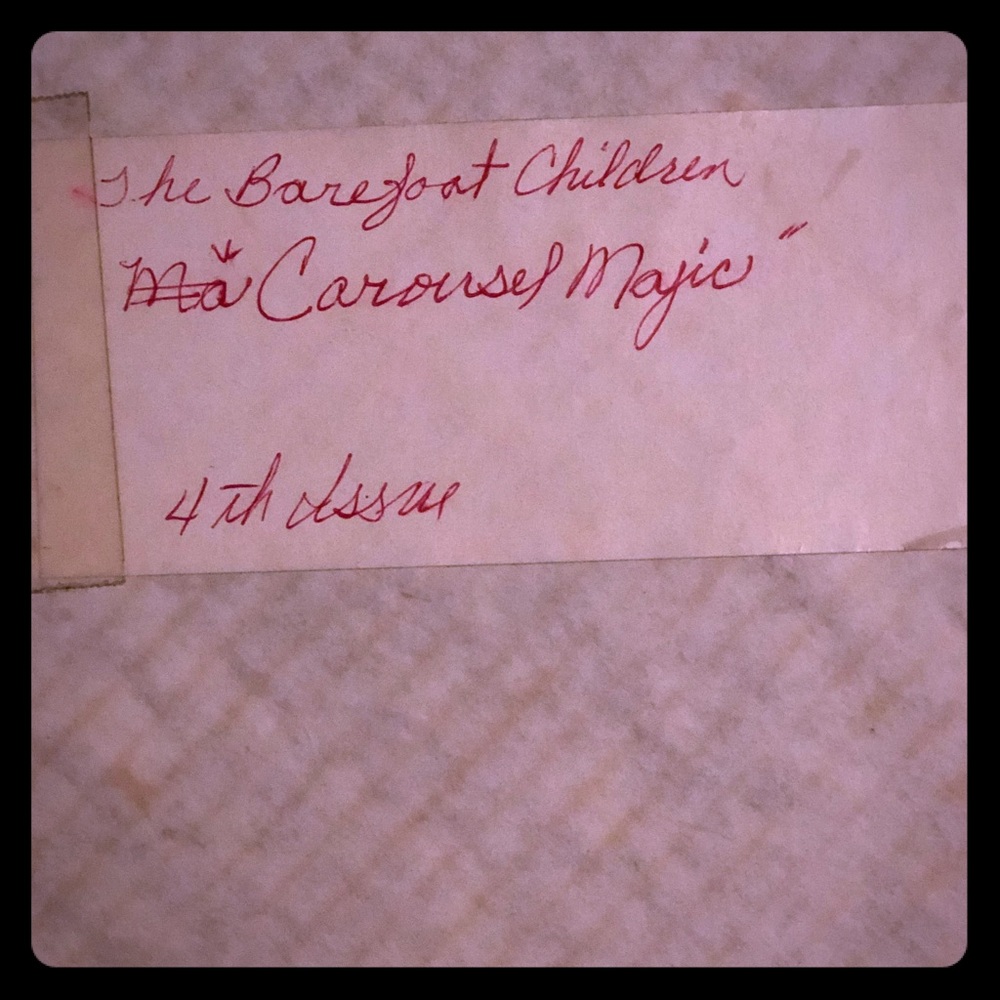 The Barefoot Children
Ma " Carousel Majic "
4th Issue